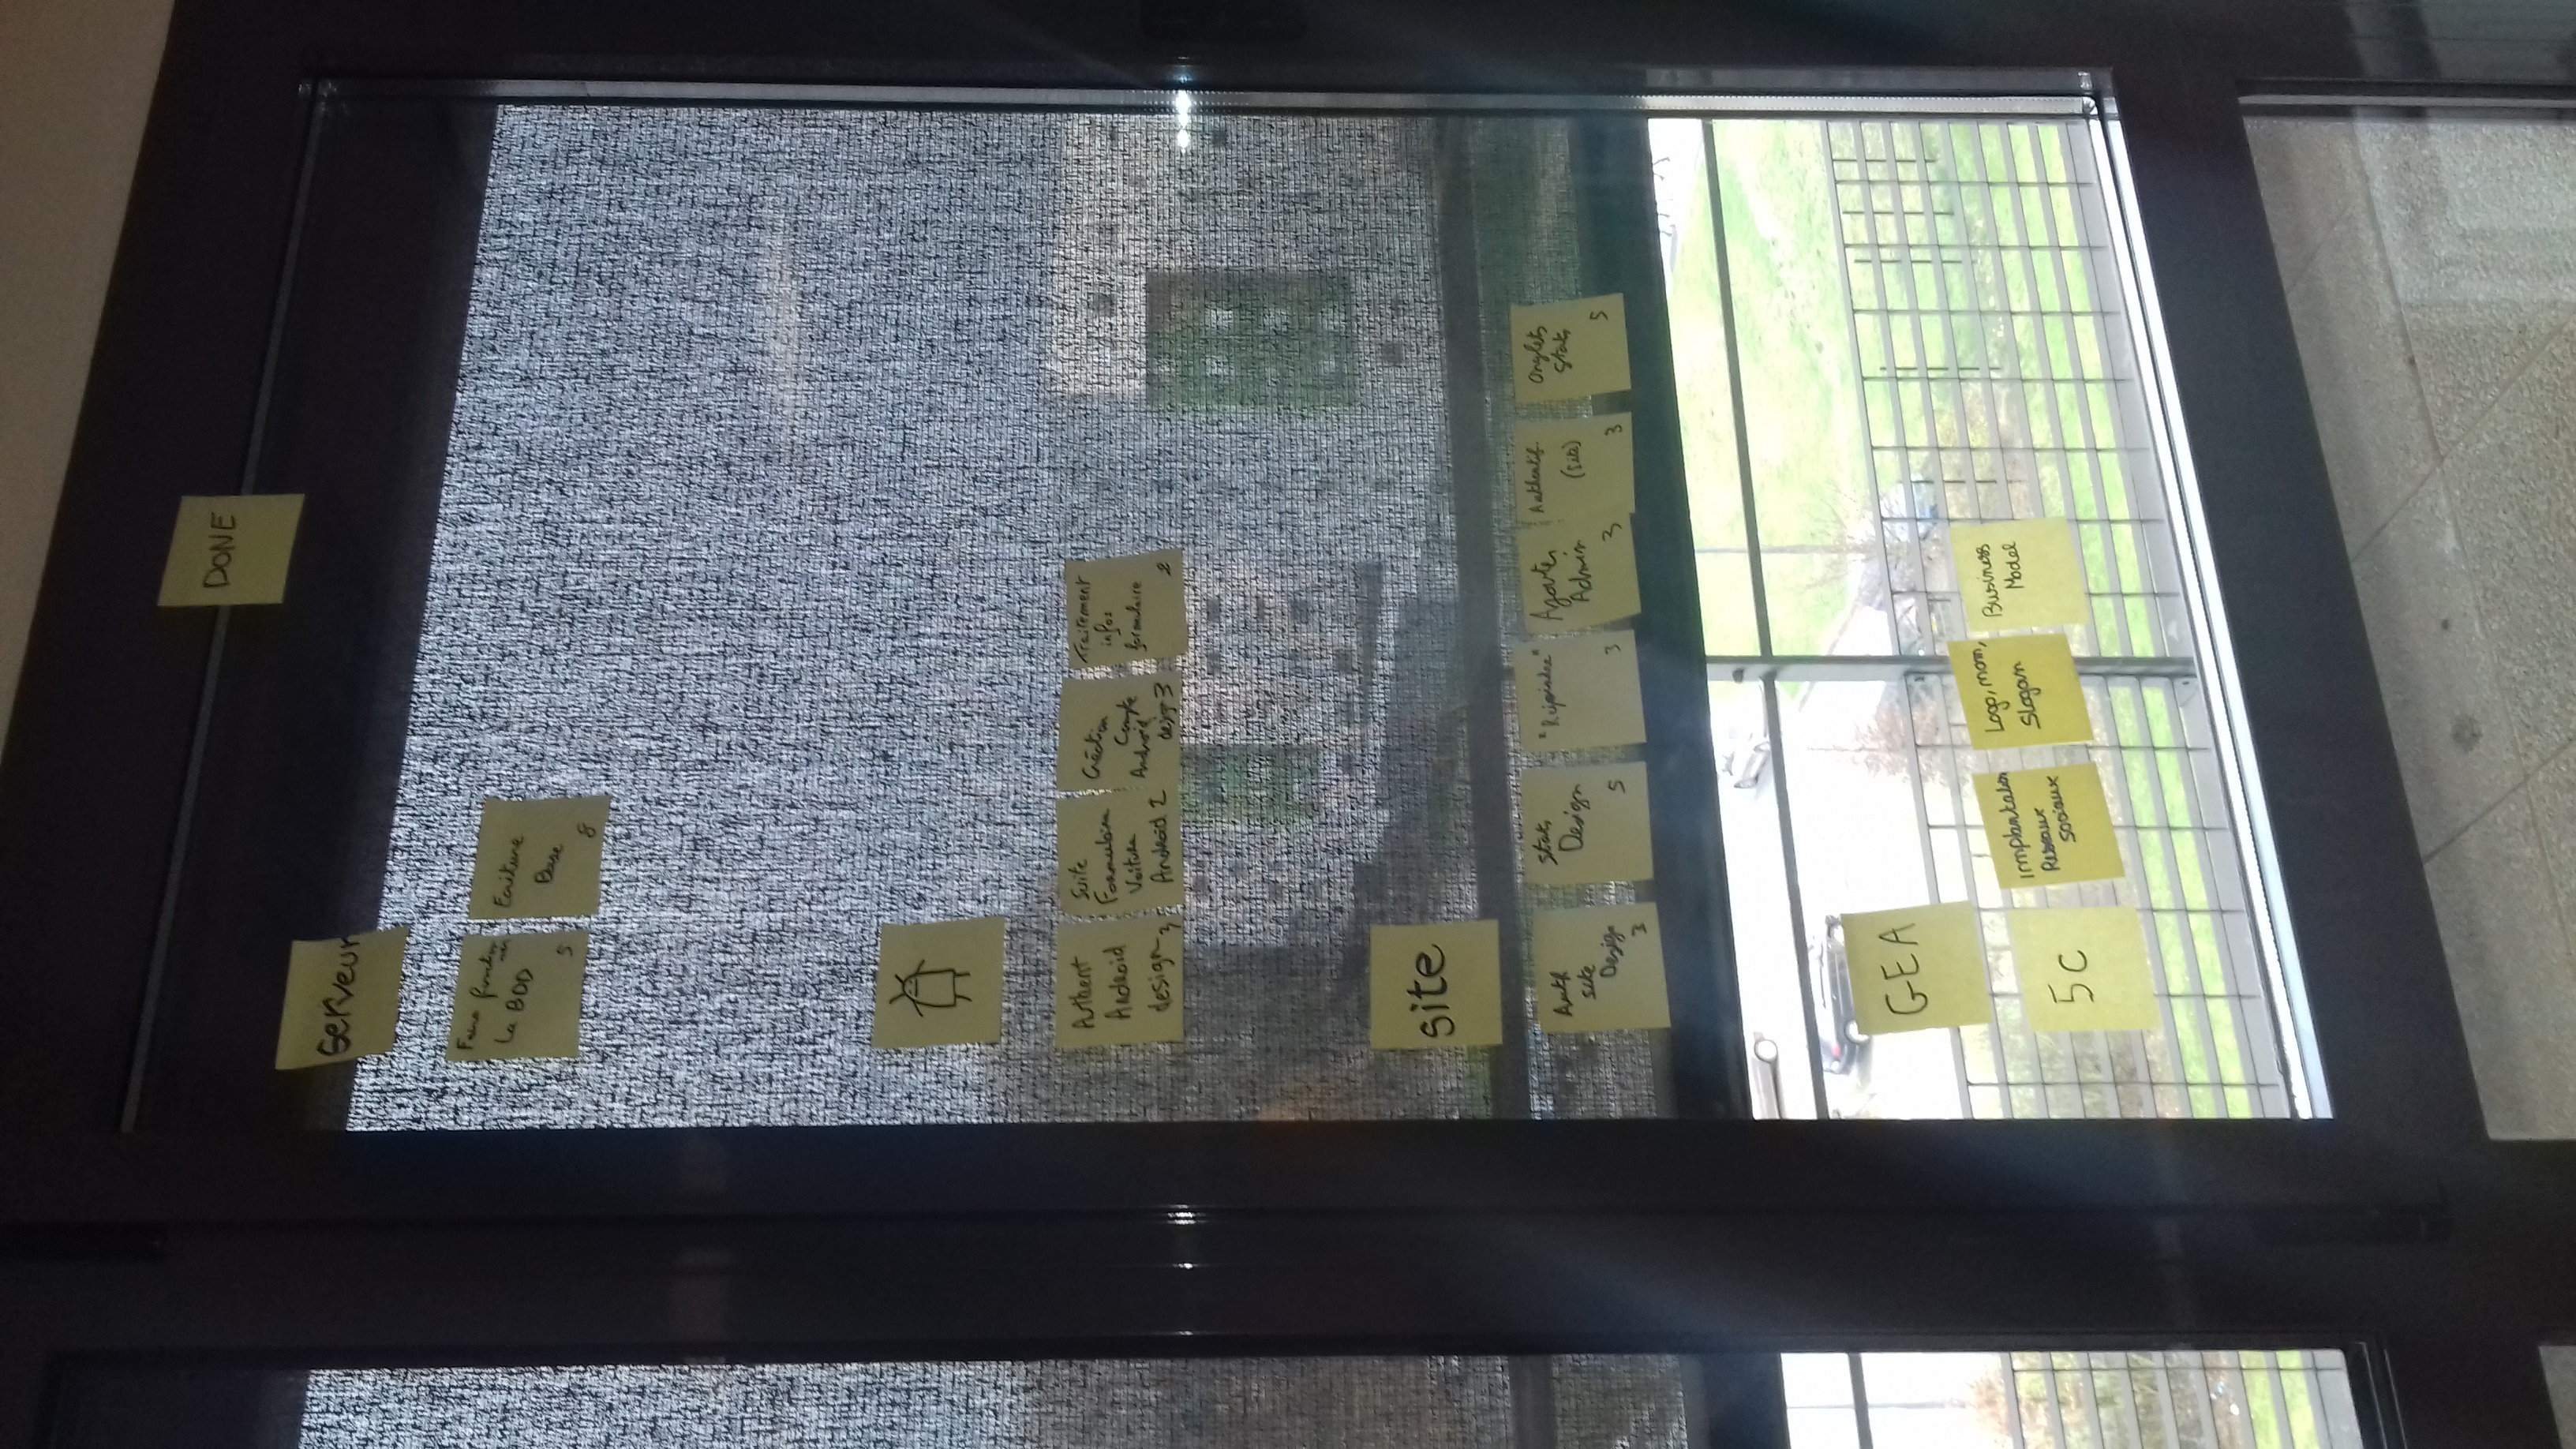 DONE
serveur
Faire fonction
ner
La BDD
5
Ecriture
Base
8
Authent
Android
design 3
Suite
Formulaire
Voiture
Android 2
Création
Compte
Android
design 3
Traitement
infos
formulaire
2
site
Auth
site
Design
3
Stats
Design
5
"Rejoindre"
3
Ajouter
Admin
3
Authentif.
(site)
3
Onglets
Stats
5
GEA
5C
Implantation
Réseaux
sociaux
Logo, nom,
Slogan
Business
Model